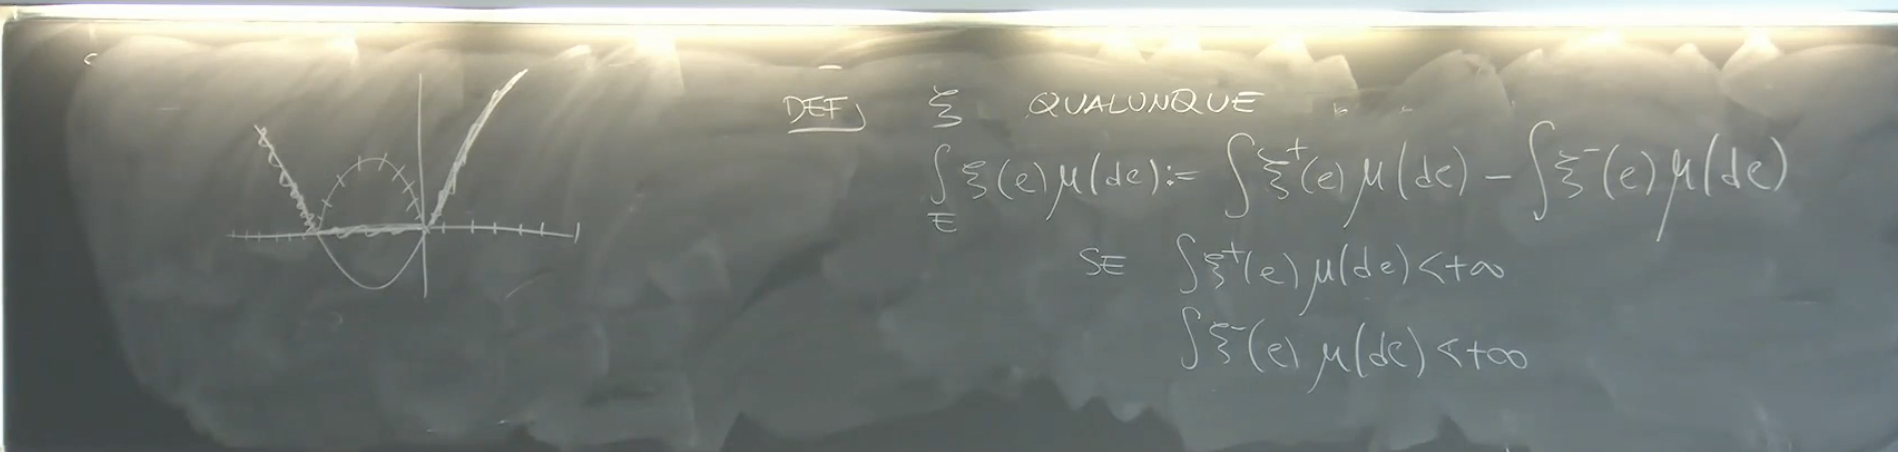 DEF) ξ QUALUNQUE
∫_E ξ(e) μ(de) := ∫ ξ⁺(e) μ(de) − ∫ ξ⁻(e) μ(de)
SE ∫ ξ⁺(e) μ(de) < +∞
∫ ξ⁻(e) μ(de) < +∞